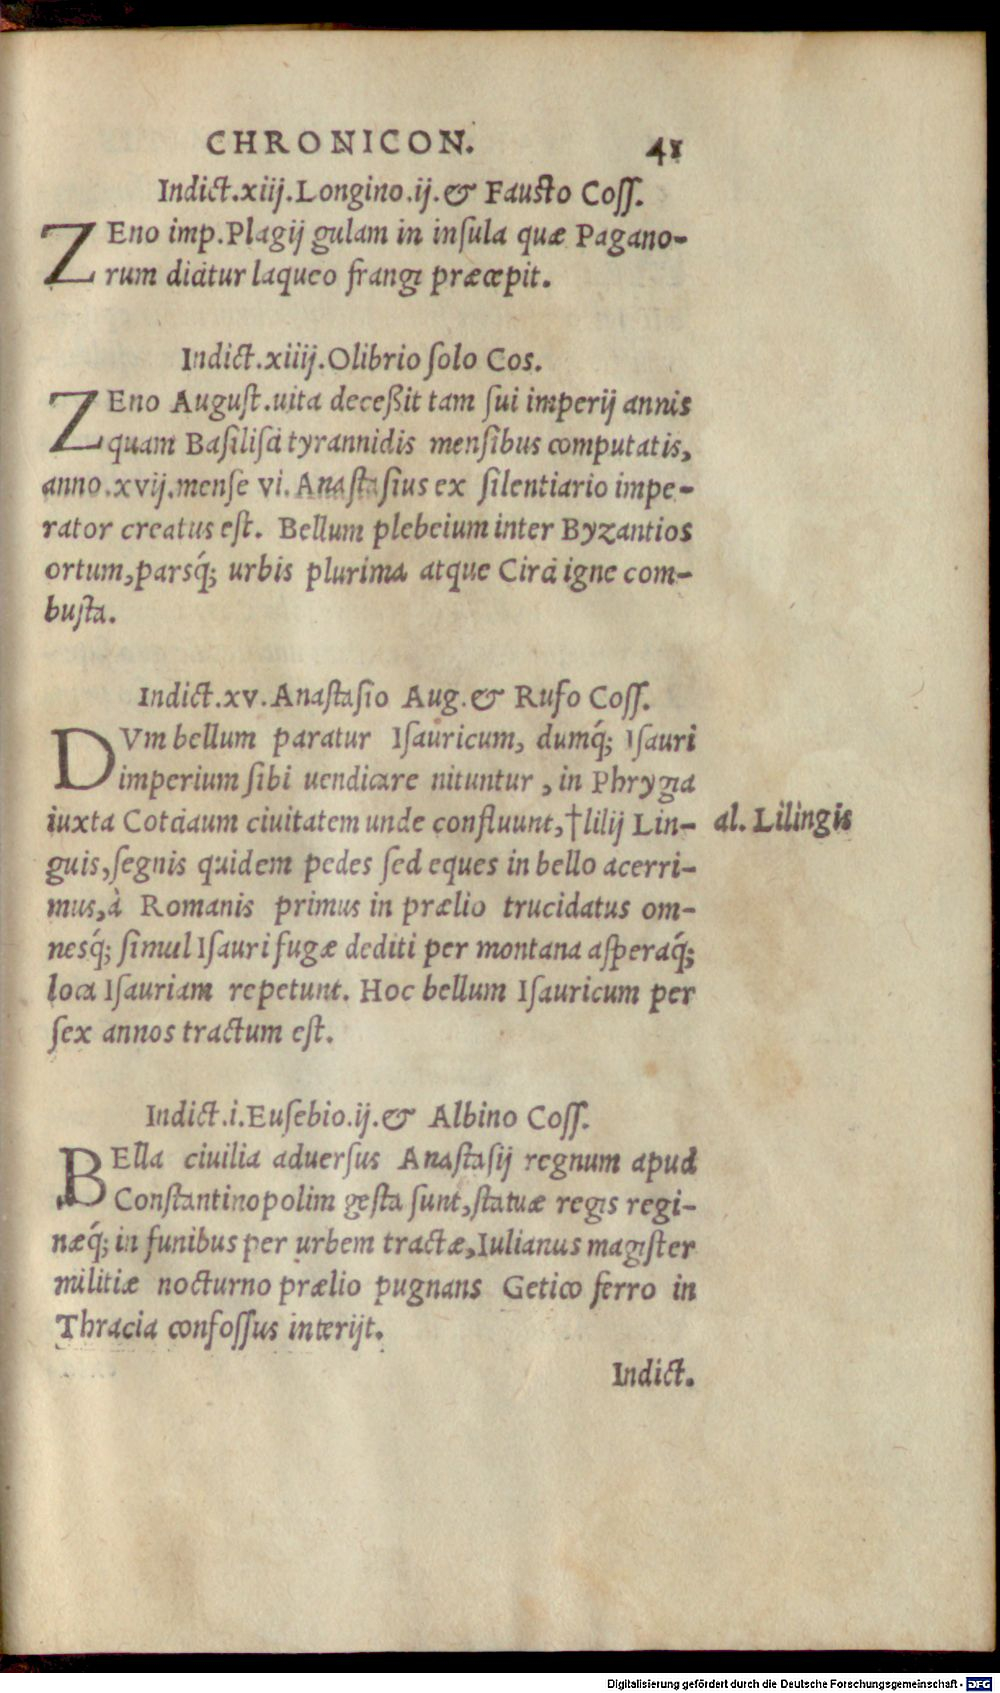 CHRONICON. 41
Indict.xiij.Longino.ij.& Fausto Coſſ.
ZEno imp.Plagij gulam in inſula quæ Pagano-
rum dicitur laqueo frangi præcepit.
Indict.xiiij.Olibrio ſolo Cos.
ZEno Auguſt.uita deceßit tam ſui imperij annis
quam Baſiliſci tyrannidis menſibus computatis,
anno.xvij.menſe vi.Anaſtaſius ex ſilentiario impe-
rator creatus eſt. Bellum plebeium inter Byzantios
ortum,parsq́; urbis plurima atque Circi igne com-
buſta.
Indict.xv.Anaſtaſio Aug.& Rufo Coſſ.
DVm bellum paratur Iſauricum, dumq́; Iſauri
imperium ſibi uendicare nituntur, in Phrygia
iuxta Cotciaum ciuitatem unde confluunt,†lilij Lin- al. Lilingis
guis,ſegnis quidem pedes ſed eques in bello acerri-
mus,à Romanis primus in prælio trucidatus om-
nesq́; ſimul Iſauri fugæ dediti per montana aſperaq́;
loca Iſauriam repetunt. Hoc bellum Iſauricum per
ſex annos tractum eſt.
Indict.i.Euſebio.ij.& Albino Coſſ.
BElla ciuilia aduerſus Anaſtaſij regnum apud
Conſtantinopolim geſta ſunt,ſtatuæ regis regi-
næq́; in funibus per urbem tractæ,Iulianus magiſter
militiæ nocturno prælio pugnans Getico ferro in
Thracia confoſſus interijt.
Indict.
Digitalisierung gefördert durch die Deutsche Forschungsgemeinschaft - DFG